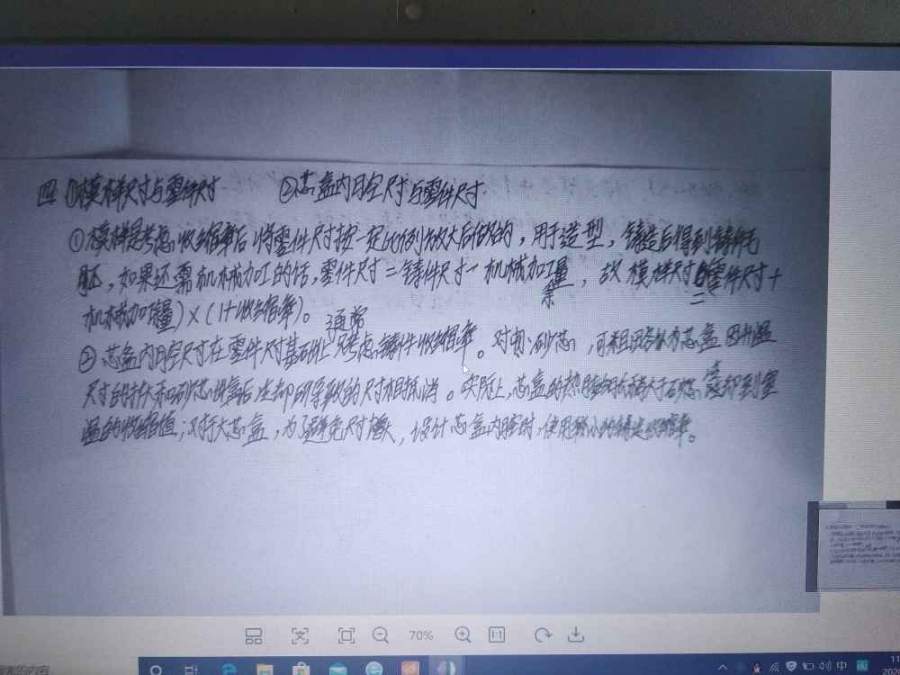 四 ①模样尺寸与零件尺寸 ②芯盒内腔尺寸与零件尺寸
①模样是考虑收缩率后将零件尺寸按一定比例放大后做的，用于造型，铸造后得到铸件毛
胚，如果还需机械加工的话，零件尺寸=铸件尺寸-机械加工余量，故模样尺寸=(零件尺寸+
机械加工余量)×(1+收缩率)。
②芯盒内腔尺寸在零件尺寸基础上通常只考虑铸件收缩率。对于砂芯，可粗略认为芯盒因升温
尺寸的增大和砂芯出盒后冷却所导致的尺寸相抵消。实际上，芯盒的热膨胀大于砂芯冷却到室
温的收缩值；对于大芯盒，为了避免尺寸，设计芯盒内腔时，使用较小的铸造收缩率。
70%
1:1
中
11